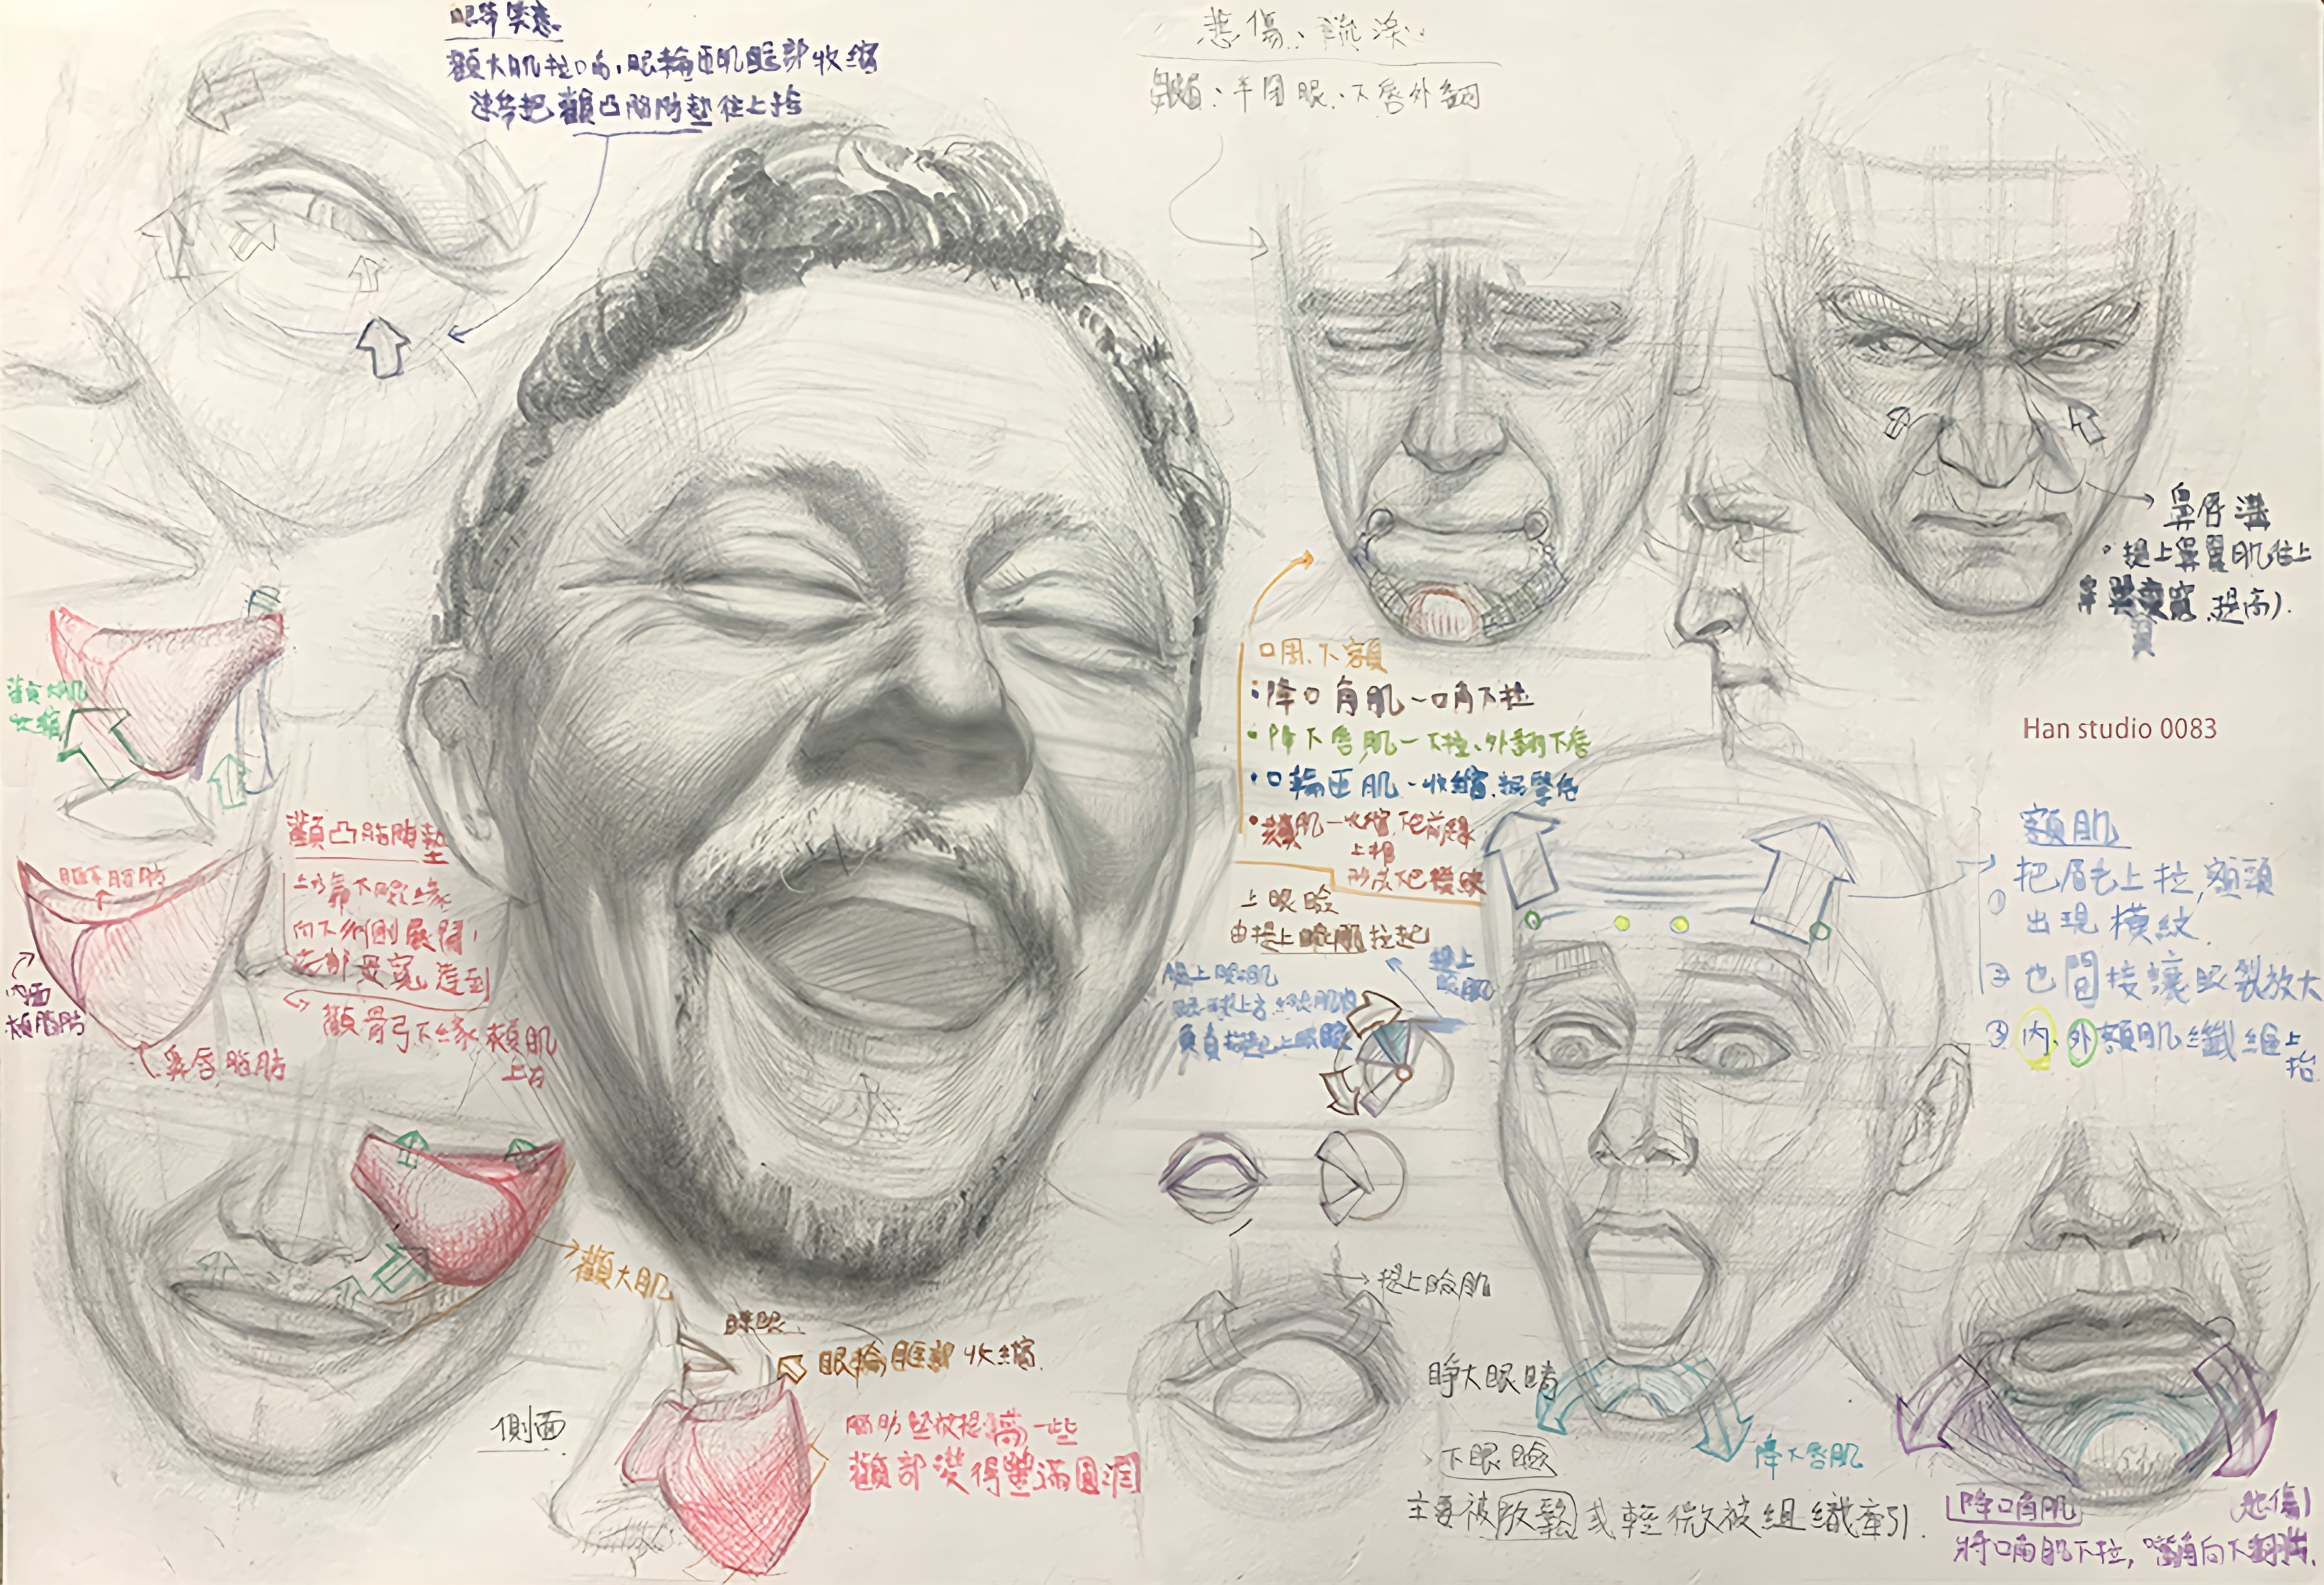 眼等笑意
顴大肌拉口角，眼輪匝肌眶部收縮
連帶把顴凸脂肪墊往上抬
悲傷、流淚
皺眉、半閉眼、下唇外翻
鼻唇溝
提上鼻翼肌往上
鼻翼變寬 提高)
Han studio 0083
口周、下額
降口角肌－口角下拉
降下唇肌－下拉、外翻下唇
口輪匝肌－收縮
頦肌－收縮
上抬
上眼瞼
由提上瞼肌拉起
提上
瞼肌
額肌
① 把眉毛上拉，額頭
出現橫紋
② 也間接讓眼裂放大
③ 內、外額肌纖維上
抬
顴凸脂肪墊
上方靠下眼瞼緣
向下外側展開，
底部最寬 達到
顴骨弓下緣 頰肌
上方
內面
頰脂肪
鼻唇脂肪
顴大肌
瞇眼
眼輪眶部收縮
側面
脂肪墊被提高一些
顴部變得豐滿圓潤
提上瞼肌
睜大眼睛
下眼瞼
主要被放鬆或輕微被組織牽引.
降下唇肌
降口角肌
悲傷
將口角肌下拉，嘴角向下